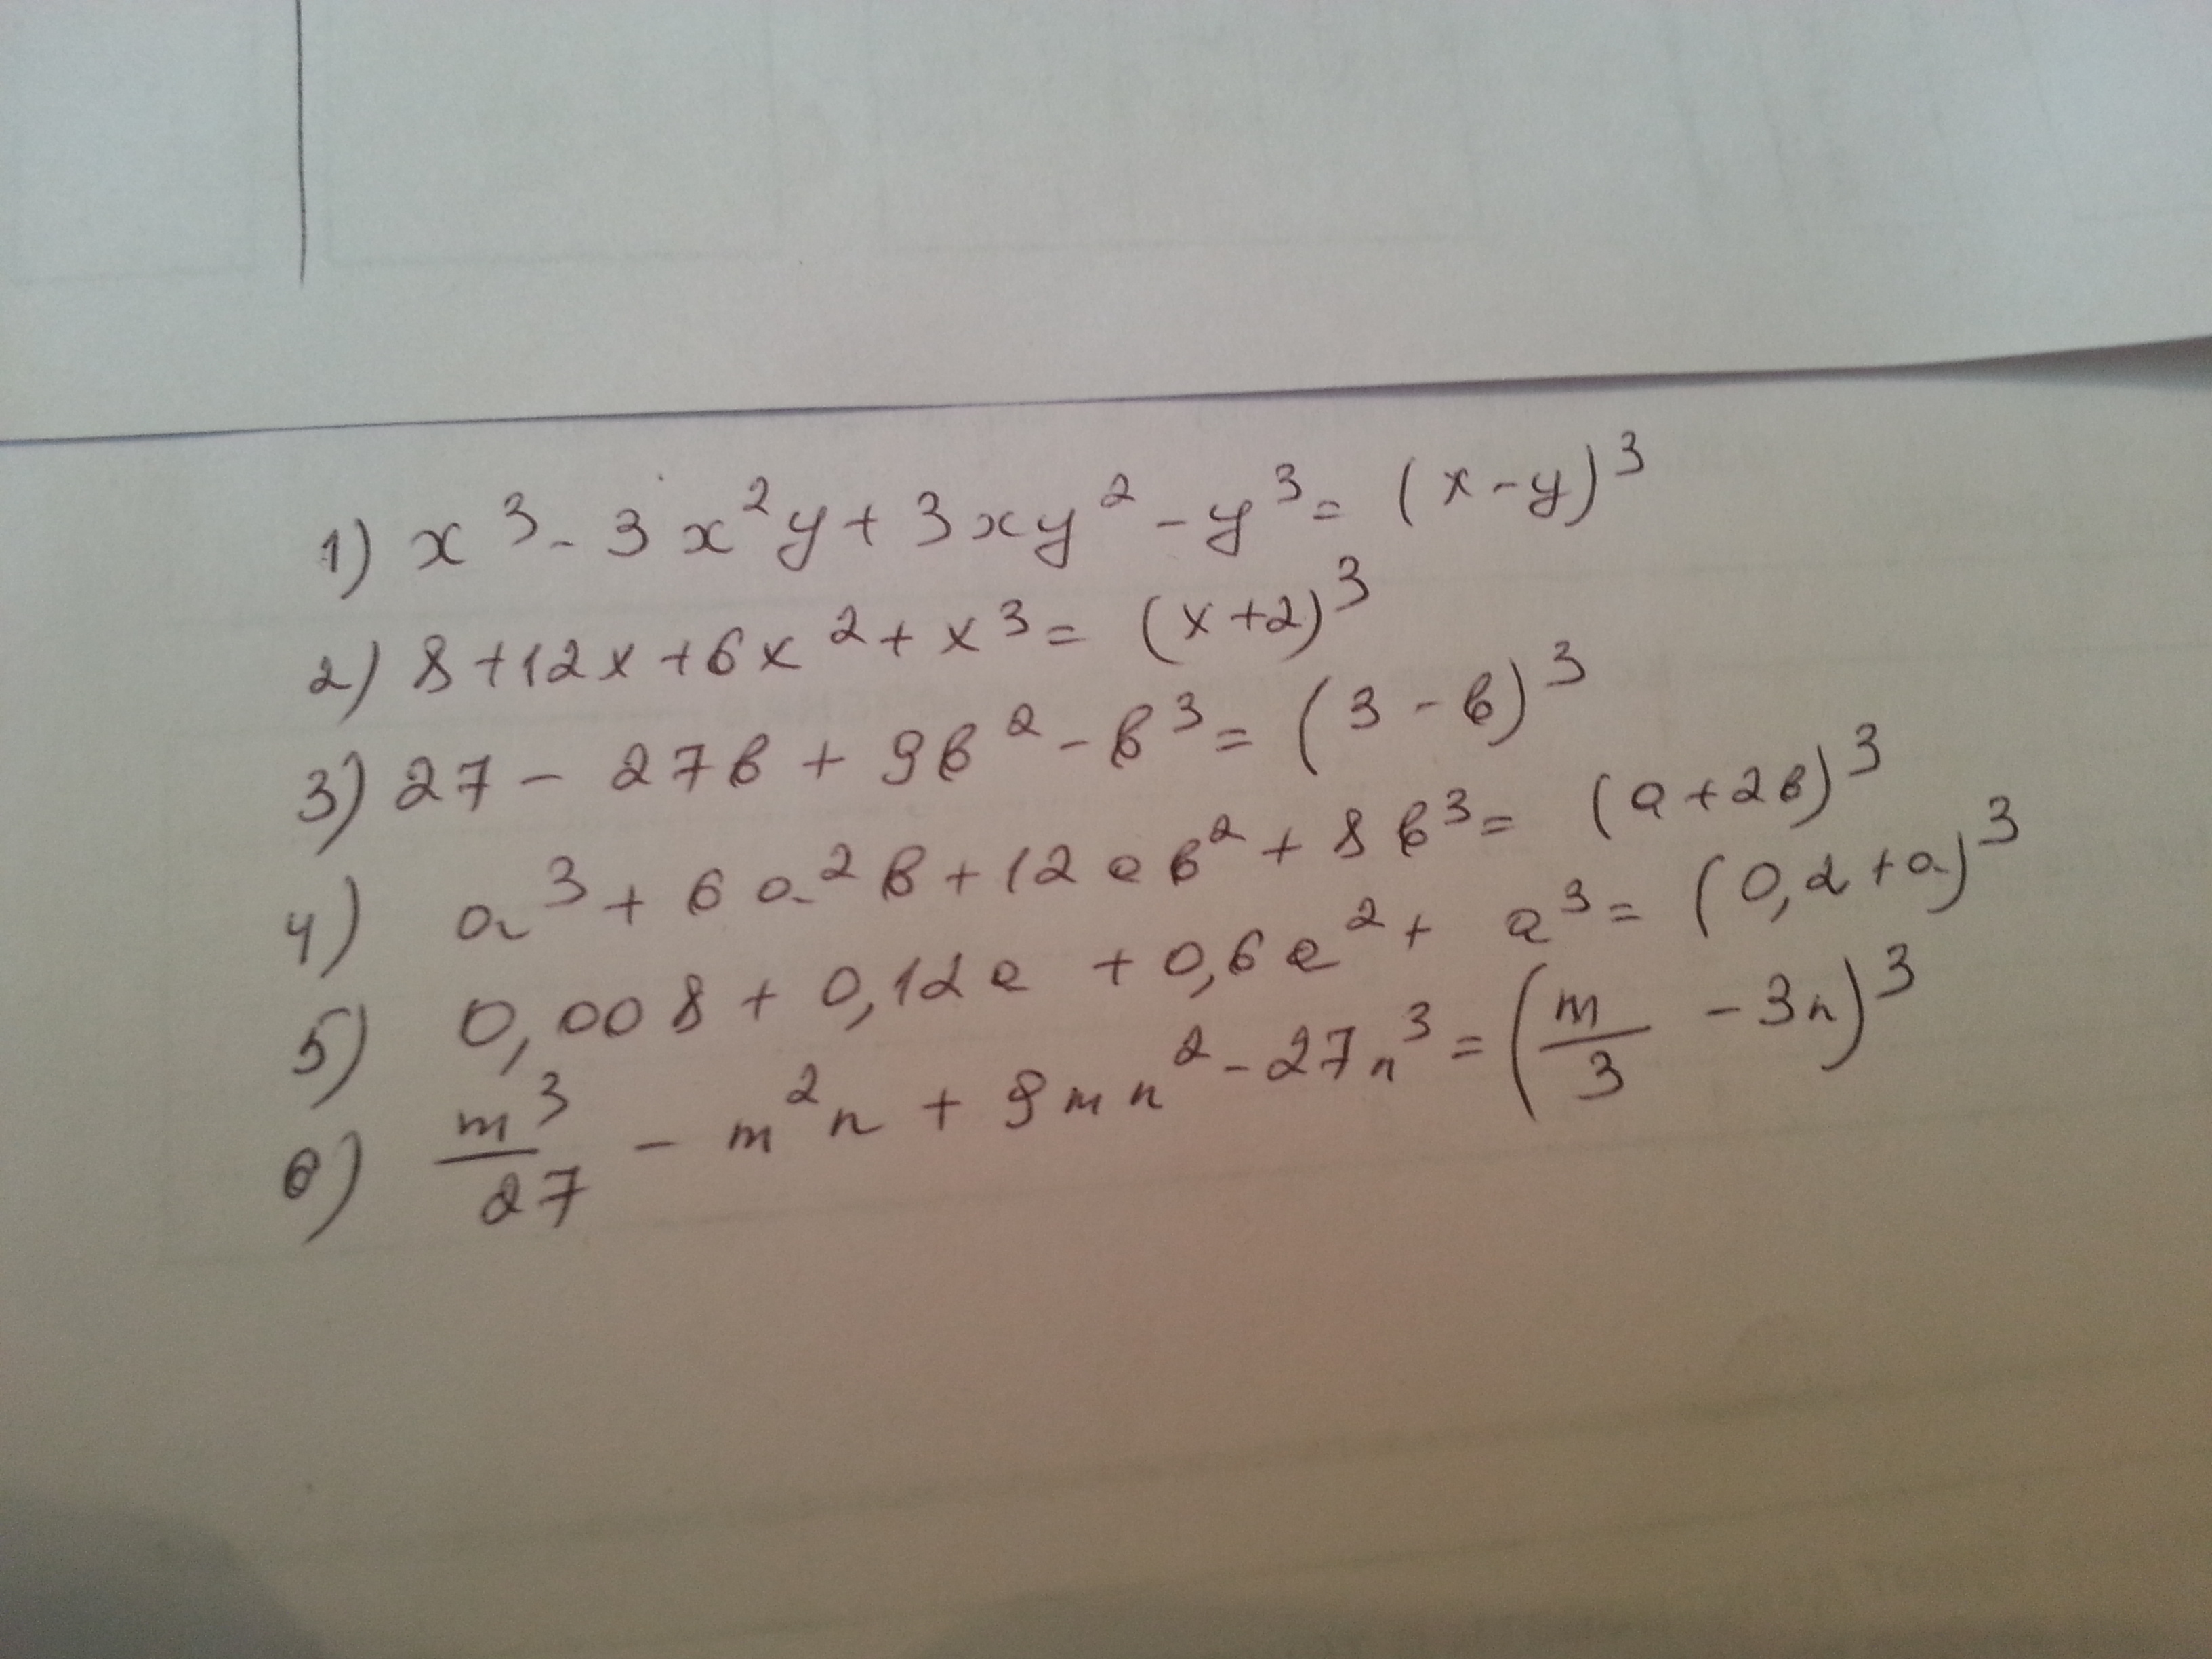 1) x³ - 3x²y + 3xy² - y³ = (x - y)³
2) 8 + 12x + 6x² + x³ = (x + 2)³
3) 27 - 27в + 9в² - в³ = (3 - в)³
4) a³ + 6a²в + 12aв² + 8в³ = (a + 2в)³
5) 0,008 + 0,12a + 0,6a² + a³ = (0,2 + a)³
6) m³/27 - m²n + 9mn² - 27n³ = (m/3 - 3n)³